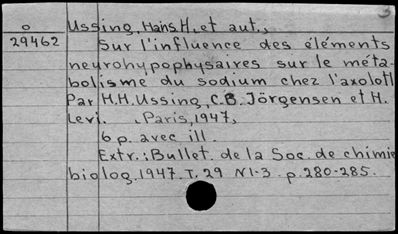 3
o Ussing, Hans H. et aut.,
29462 Sur l'influence des éléments
neurohypophysaires sur le méta-
bolisme du sodium chez l'axolotl
Par H.H. Ussing, C.B. Jörgensen et H.
Levi. Paris, 1947,
6 p. avec ill.
Extr.: Bullet. de la Soc. de chimie
biolog. 1947. T. 29 N1-3 p. 280-285.